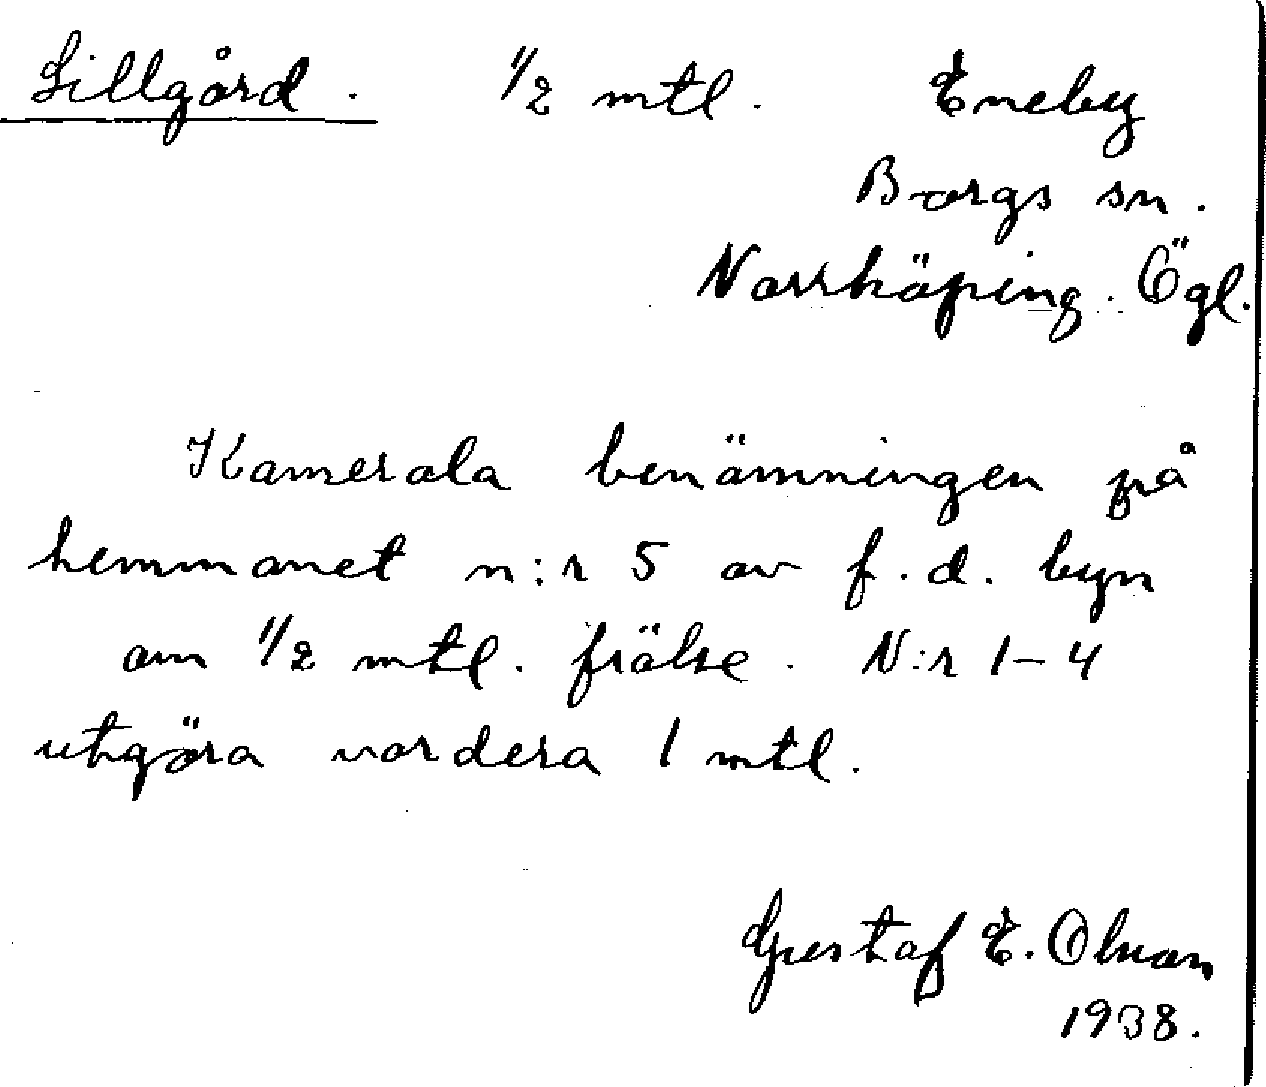 Lillgård. 1/2 mtl. Eneby
Borgs sn.
Norrköping. Ögl.
Kamerala benämningen på
hemmanet n:r 5 av f.d. byn
om 1/2 mtl. frälse. N:r 1-4
utgöra vardera 1 mtl.
Gustaf E. Olsson
1938.